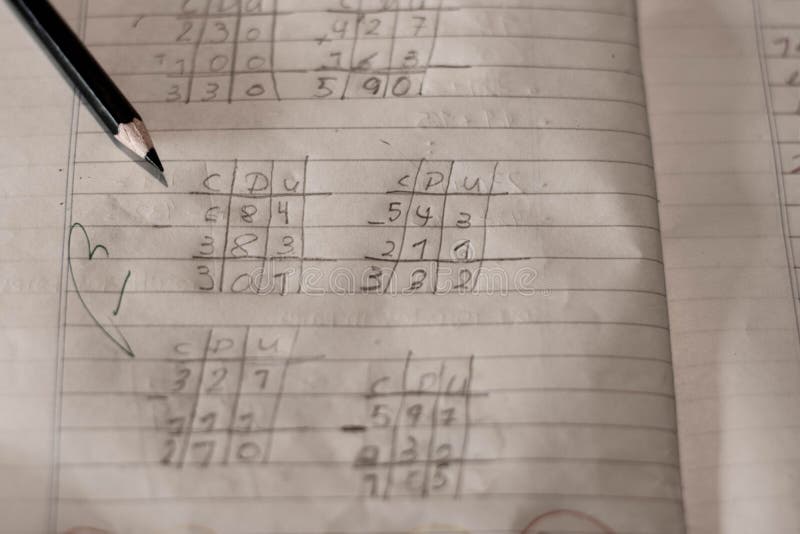 C D U
2 3 0
+ 1 0 0
3 3 0
+ 4 2 7
1 6 3
5 9 0
C D U
6 8 4
3 8 3
3 0 1
C D U
- 5 4 3
2 1 1
3 3 2
C D U
3 2 1
- 1 1 1
2 1 0
C D U
- 5 9 7
3 2
1 6 5
dreamstime